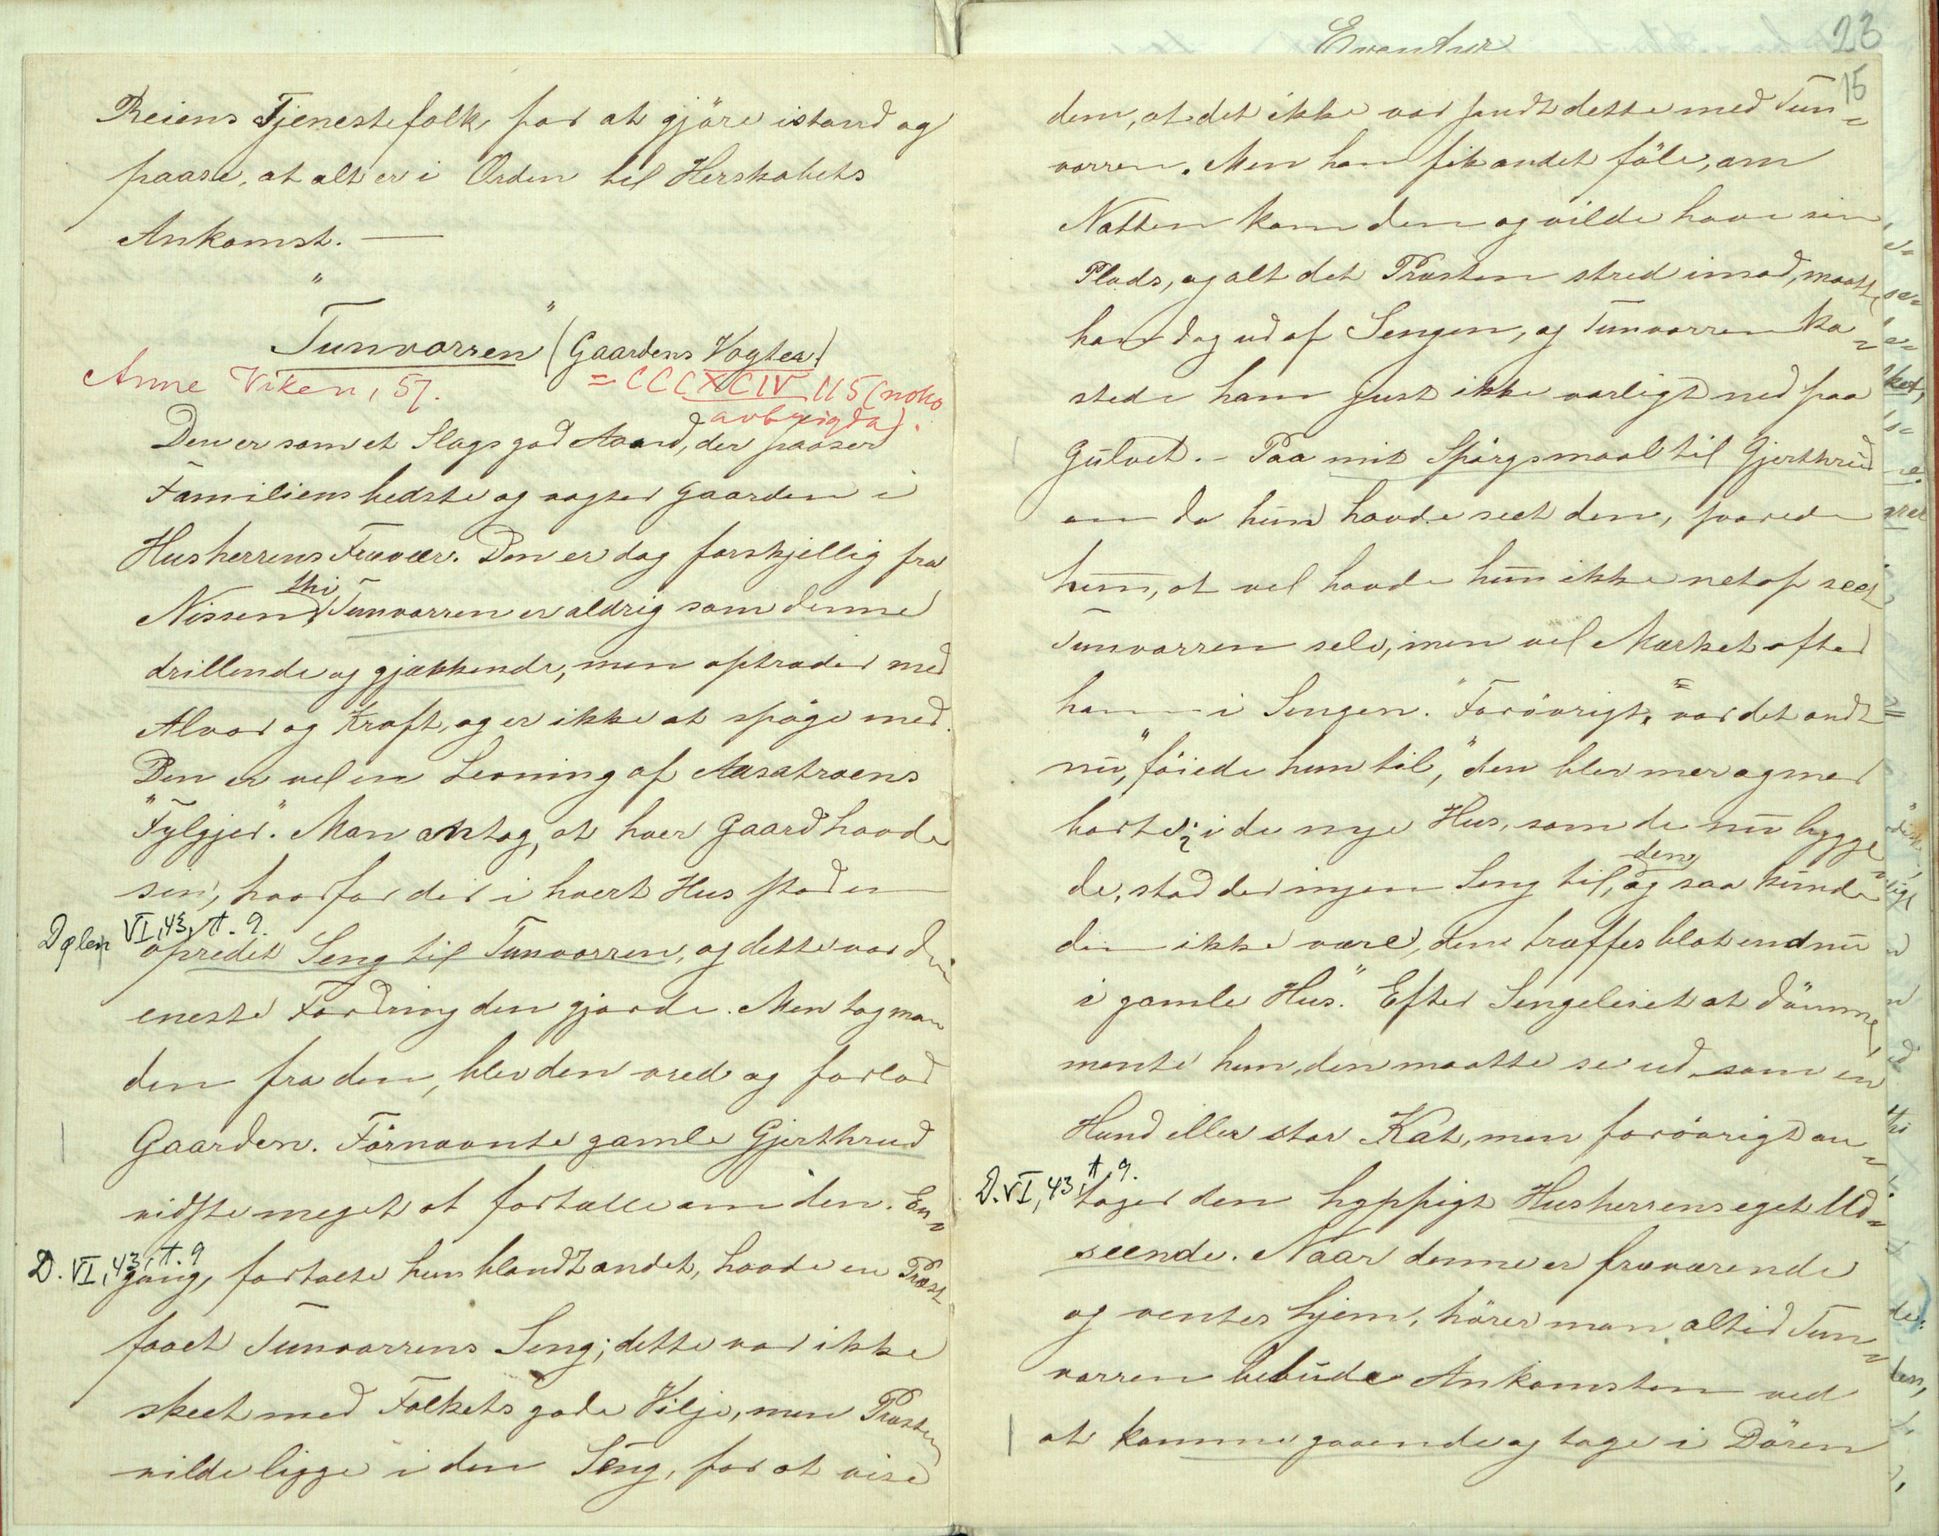 Reiens Tjenestefolk, for at gjöre istand og
paase, at alt er i Orden til Herskabets
Ankomst. —
"Tunvorren" (Gaardens Vogter)
Anne Viken, 57.
= CCCXCIV 115 (noko
avbrigda).
Den er som et Slags god Aand, der passer
Familiens bedste og vogter Gaarden i
Husherrens Fravær. Den er dog forskjellig fra
Nissen, thi Tunvorren er aldrig som denne
drillende og gjækkende, men optræder med
Alvor og Kraft, og er ikke at spöge med.
Den er vel en Levning af Aasatroens
"Fylgjer". Man antog, at hver Gaard havde
sin, hvorfor der i hvert Hus stod en
Dølen VI, 43, A. 9.
opredet Seng til Tunvorren, og dette var den
eneste Fordring den gjorde. Men tog man
den fra den, blev den vred og forlod
Gaarden. Förnævnte gamle Gjerthrud
vidste meget at fortælle om den. En-
D. VI, 43, A. 9
gang, fortalte hun blandt andet, havde en Præst
faaet Tunvorrens Seng; dette var ikke
skeet med Folkets gode Vilje, men Præsten
vilde ligge i den Seng, for at vise
Eventyr
23
15
dem, at det ikke var sandt dette med Tun-
vorren. Men han fik andet föle, om
Natten kom den og vilde have sin
Plads, og alt det Præsten stred imod, maatte
han dog ud af Sengen, og Tunvorren ka-
stede ham just ikke varligt ned paa
Gulvet. – Paa mit Spörgsmaal til Gjerthrud
om da hun havde seet den, svarede
hun, at vel havde hun ikke netop seet
Tunvorren selv, men vel Mærket efter
ham i Sengen. "Forövrigt" var det ondt
nu," föiede hun til, "den blev mer og mer
borte; i de nye Hus, som de nu bygge-
de, stod der ingen Seng til den, og saa kunde
den ikke være, den træffes blot endnu
i gamle Hus." Efter Sengeleiet at dömme,
mente hun, den maatte se ud som en
Hund eller stor Kat, men forövrigt an-
D. VI, 43, A. 9.
tager den hyppigt Husherrens eget Ud-
seende. Naar denne er fraværende
og ventes hjem, hörer man altid Tun-
vorren bebude Ankomsten ved
at komme gaaende og tage i Dören